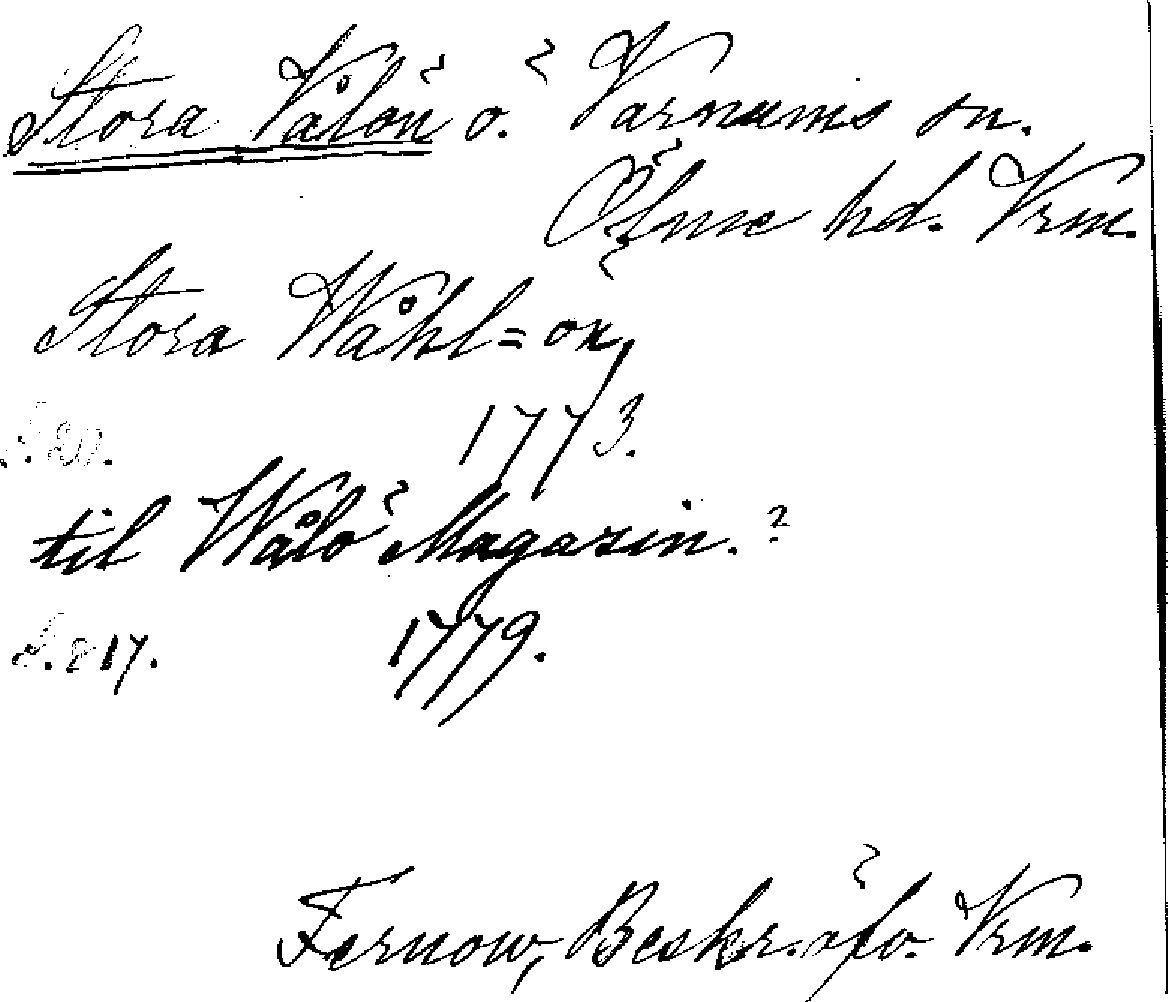 Stora Vålön ö. Värnums sn.
Ölme hd. Vrm.
Stora Wåhl=ön,
S. 20. 1773.
til Wålö Magazin.?
S. 817. 1779.
Fernow, Beskr. öfv. Vrm.